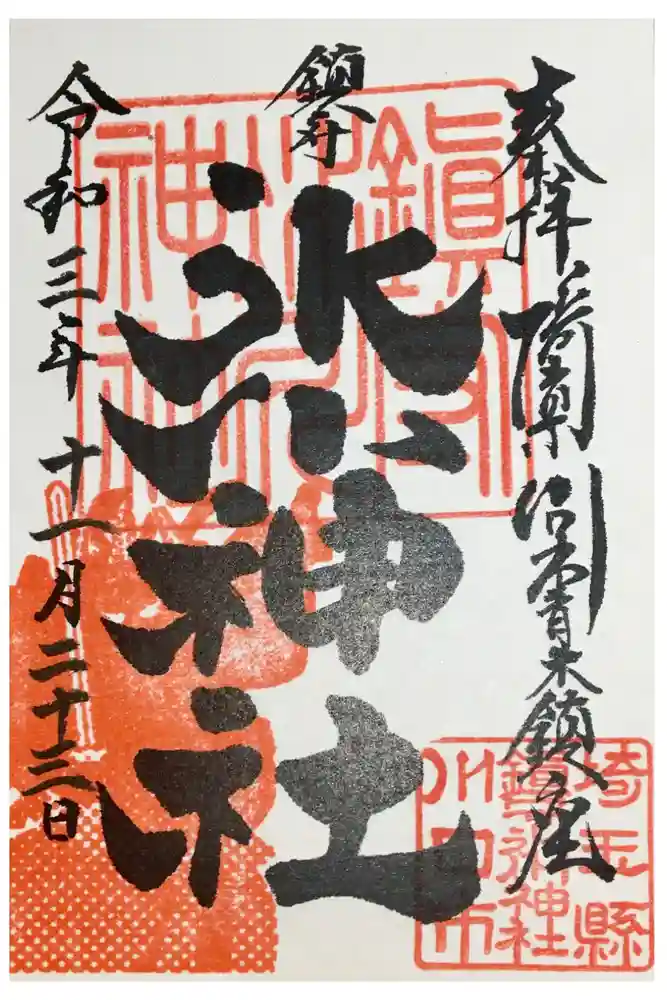 奉拝
青木鎮座
鎮守
氷川神社
令和三年十一月二十三日
鎮守
氷川
神社
埼玉縣
鎮守氷川神社
川口市